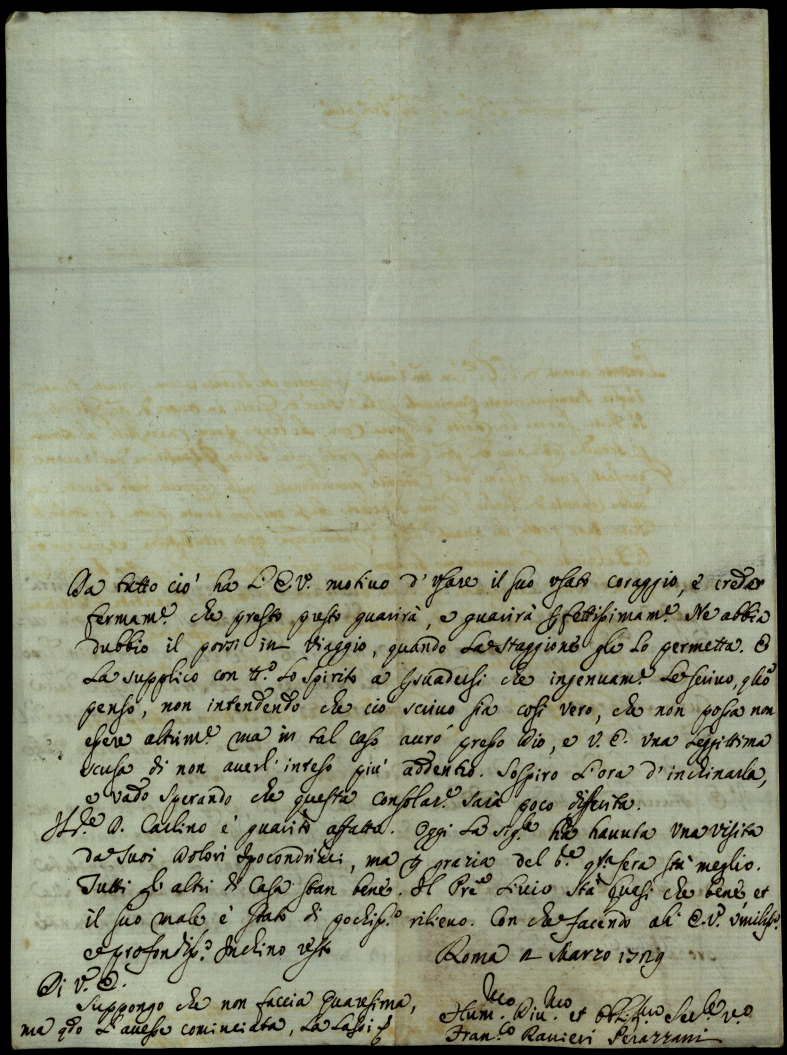 Da tutto ciò ha L'E.V. motivo d'usare il suo usato coraggio, e creder
fermam.e che presto presto guarirà, e guarirà pfettissimam.e Ne abbia
dubbio il porsi in viaggio, quando La staggione gle Lo permetta. E
La supplico con tt.o Lo spirito a psuadersi che ingenuam.e Le scrivo, q.llo
penso, non intendendo che ciò scrivo sia così vero, che non possa non
essere altrim.e ma in tal caso avrò presso Dio, e V.E. una Leggittima
scusa di non averl' inteso più addentro. Sospiro L'ora d'inchinarla,
e vado sperando che questa consolaz.e sarà poco differita.
D. Carlino è guarito affatto. Oggi La Sig.ra ha havuta una visita
da suoi Dolori Ipocondrici, ma p grazia del sera stà meglio.
Tutti gl' altri di Casa stan bene. Il Pre Livio stà quasi che bene et
il suo male è stato di pochiss.o rilievo. Con che facendo all' E.V. umiliss.o
e profondiss.o Inchino resto
Roma 2 Marzo 1729
Di V.E.
Suppongo che non faccia Quaresima,
ma q.do L'avesse cominciata, La Lassi
Hum.mo Div.mo et Obbl.mo
Fran.co Ranieri Perazzani